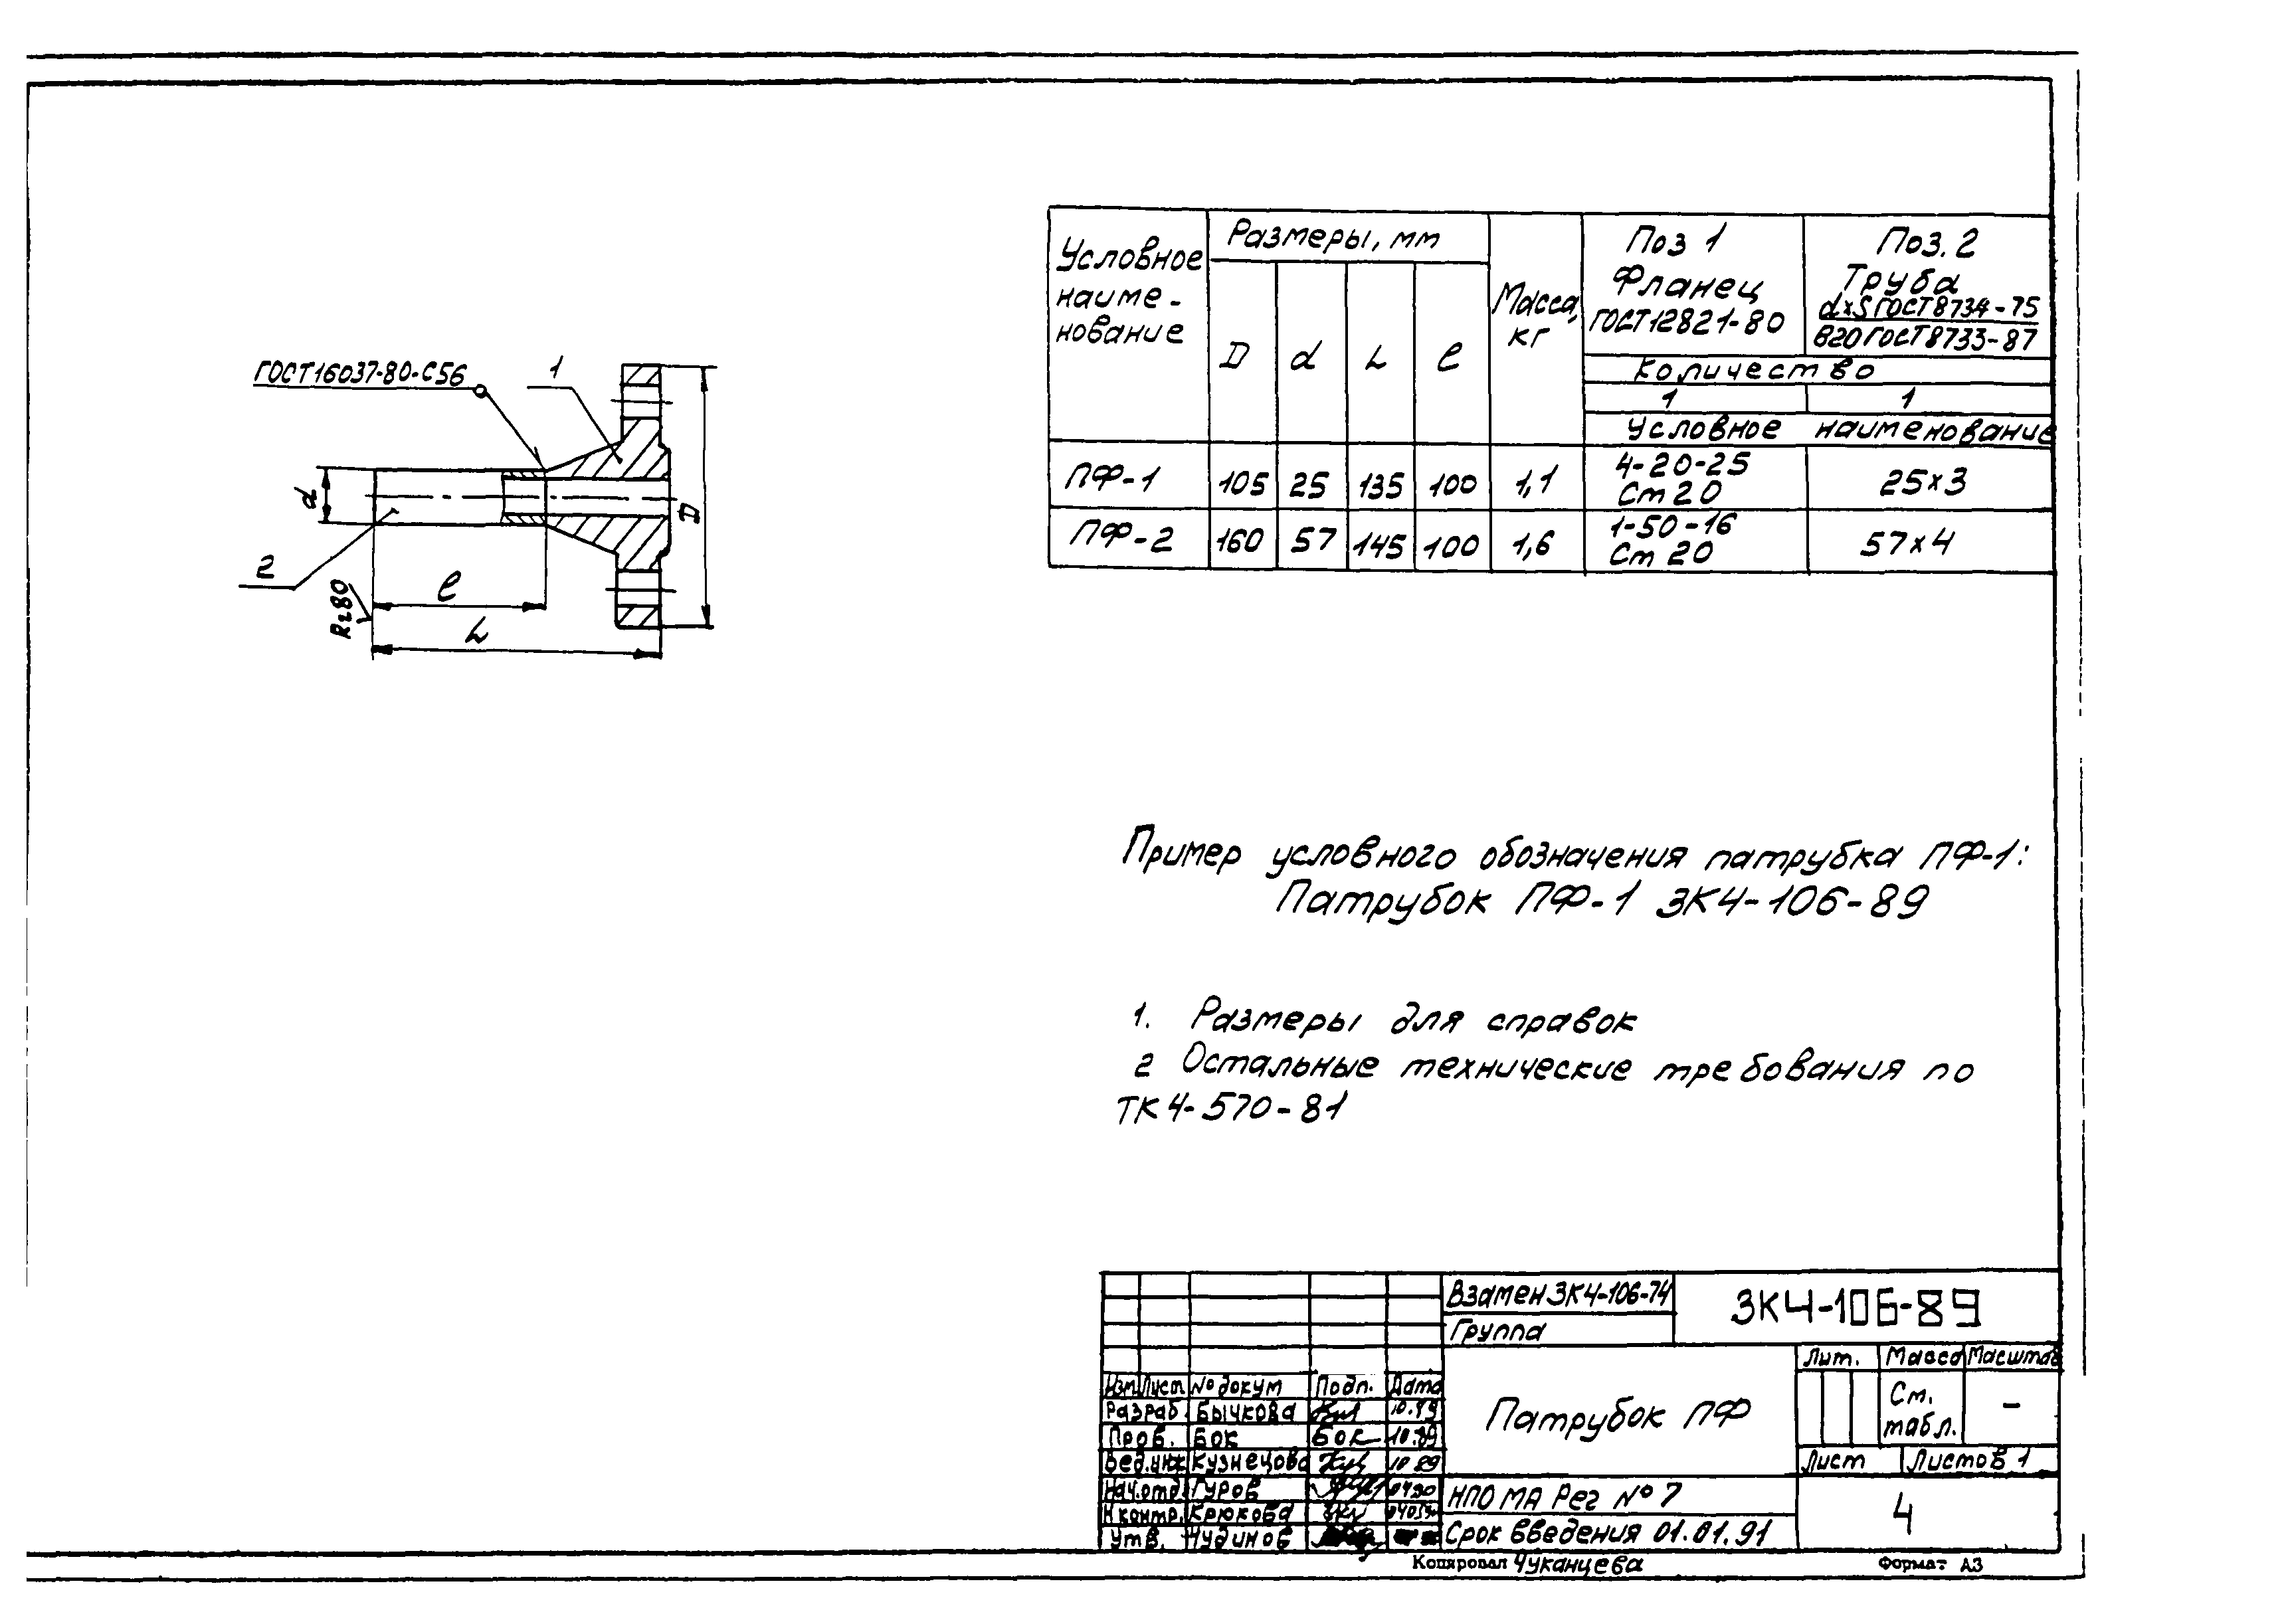 ГОСТ16037-80-С56
1
d
D
2
Rz80
ℓ
L
Условное
наиме-
нование
Размеры, мм
D
d
L
ℓ
Масса,
кг
Поз 1
Фланец
ГОСТ12821-80
Поз. 2
Труба
d×S ГОСТ8734-75
В20 ГОСТ8733-87
Количество
1 1
Условное наименование
ПФ-1 105 25 135 100 1,1 4-20-25 Ст 20 25×3
ПФ-2 160 57 145 100 1,6 1-50-16 Ст 20 57×4
Пример условного обозначения патрубка ПФ-1:
Патрубок ПФ-1 ЗК4-106-89
1. Размеры для справок
2 Остальные технические требования по
ТК4-570-81
Взамен ЗК4-106-74
Группа
ЗК4-106-89
Изм. Лист № докум Подп. Дата
Разраб. Бычкова
Пров. Бок Бок 10.89
Вед.инж Кузнецова 10 89
Нач.отд. Гуров
Н контр. Крюкова
Утв. Чудинов
Патрубок ПФ
Лит. Масса Масштаб
См.
табл.
–
Лист Листов 1
НПО МА Рег № 7
Срок введения 01.01.91
4
Копировал Чуканцева
Формат А3